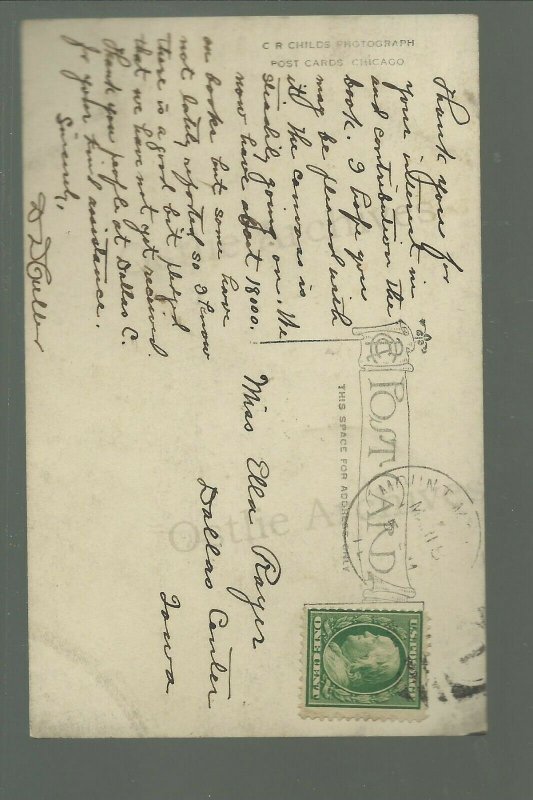 C R CHILDS PHOTOGRAPH
POST CARDS CHICAGO
Thank you for
your interest in
and contribution the
book. I hope you
may be pleased with
it. The canvass is
steadily going on. We
now have about 18000.
on books but some have
not lately reported so I know
There is a good bit pledged
that we have not yet received.
Thank you people at Dallas C.
for your kind assistance.
Sincerely,
POST CARD
THIS SPACE FOR ADDRESS ONLY
MOUNT
Miss Ella Royer
Dallas Center
Iowa
U.S. POSTAGE
ONE CENT